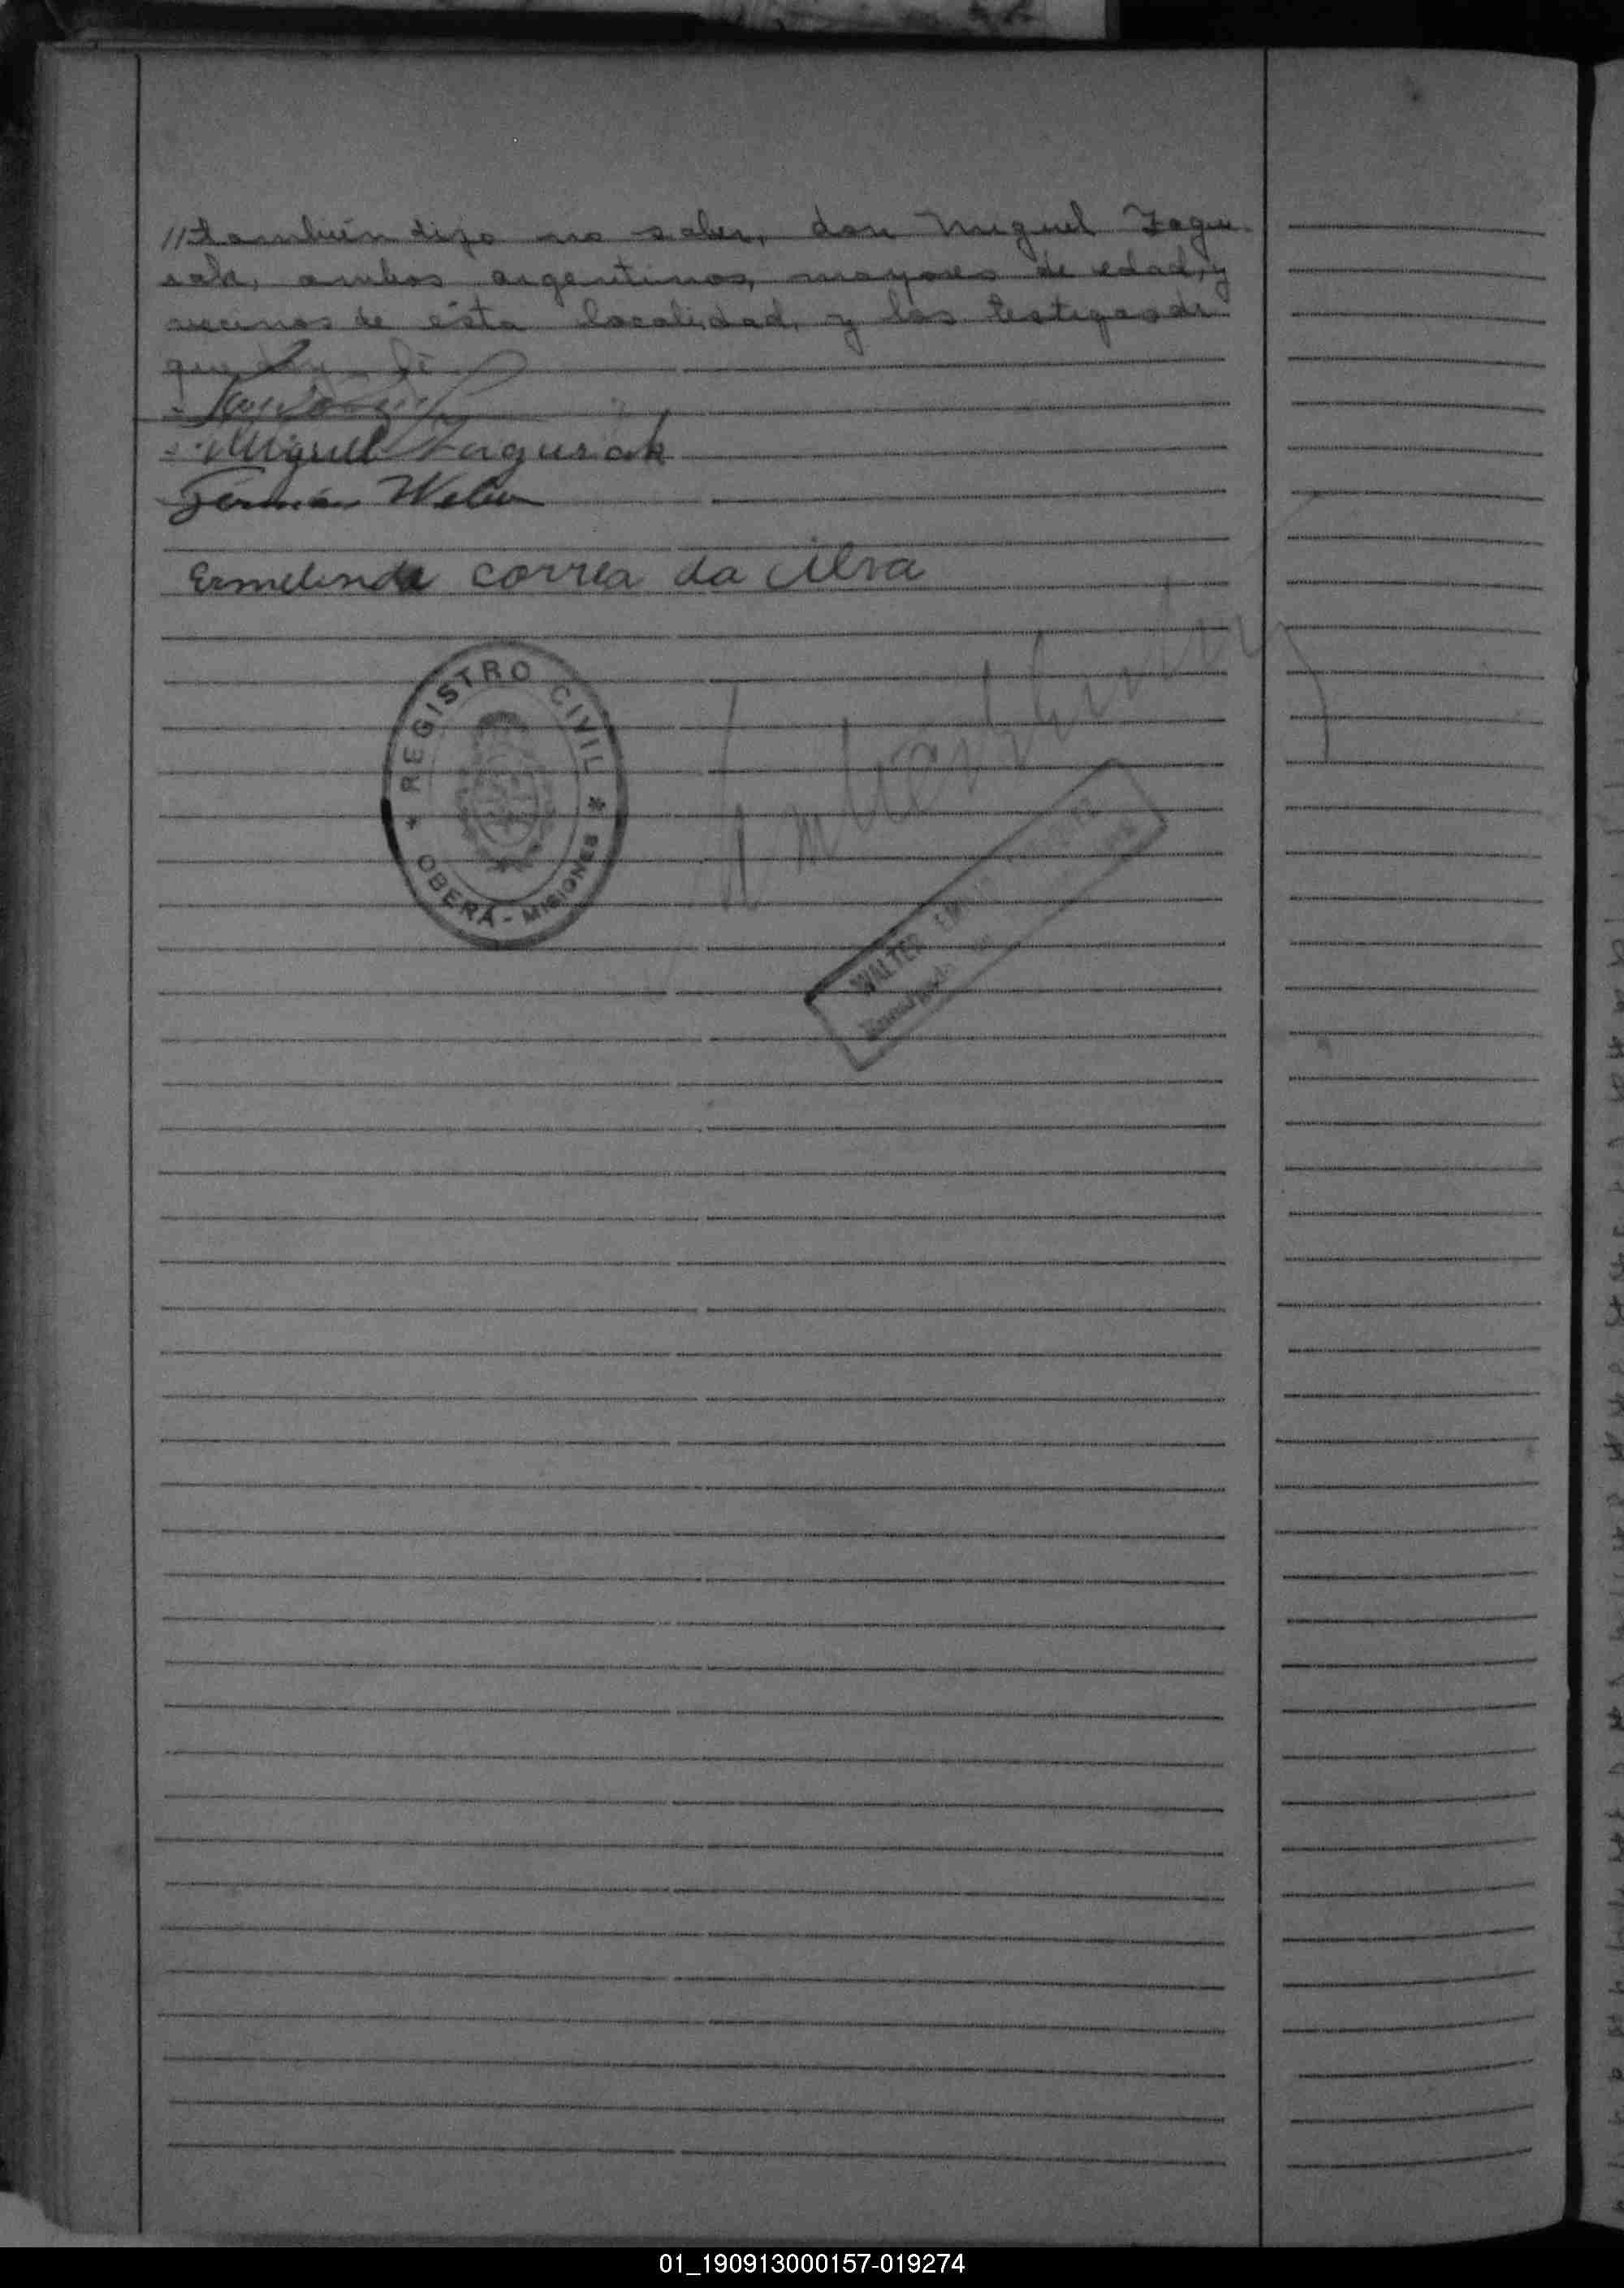 //también dijo no saber, don Miguel Zagu-
rak, ambos argentinos, mayores de edad, y
vecinos de ésta localidad, y los testigos de
que doy fé
Miguel Zagurak
Germán Weber
Ermelinda correa da silva
REGISTRO CIVIL
OBERÁ - MISIONES
WALTER
Encargado
01_190913000157-019274